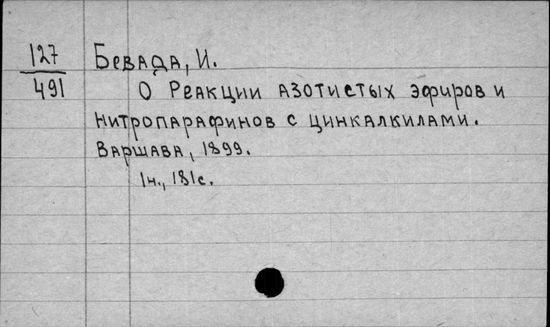 127 Бевада, И.
491 О Реакции азотистых эфиров и
нитропарафинов с цинкалкилами.
Варшава, 1899.
1н., 181с.